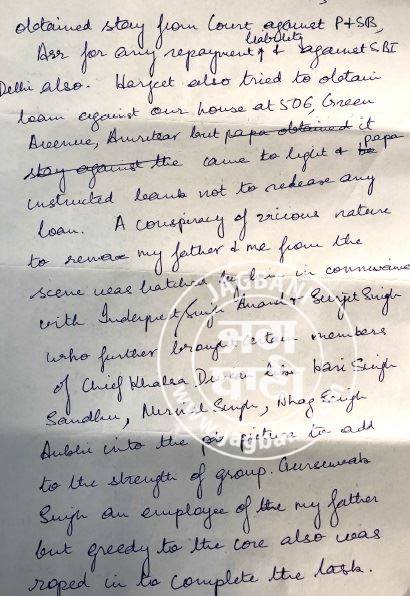 obtained stay from Court against P+SB,
Asr for any repayment liability & against SBI
Delhi also. Harjeet also tried to obtain
loan against our house at 506, Green
Avenue, Amritsar but papa obtained it
stay against the came to light & papa
instructed bank not to release any
loan. A conspiracy of vicious nature
to remove my father & me from the
scene was hatched by him in connivance
with Inderpreet Singh Anand & Surjit Singh
who further brought certain members
of Chief Khalsa Diwan Singh
Sandhu, Nirmal Singh, Bhag Singh
into the picture to add
to the strength of group. Gursewak
Singh an employee of the my father
but greedy to the core also was
roped in to complete the task.
JAGBANI
जग बाणी
www.jagbani